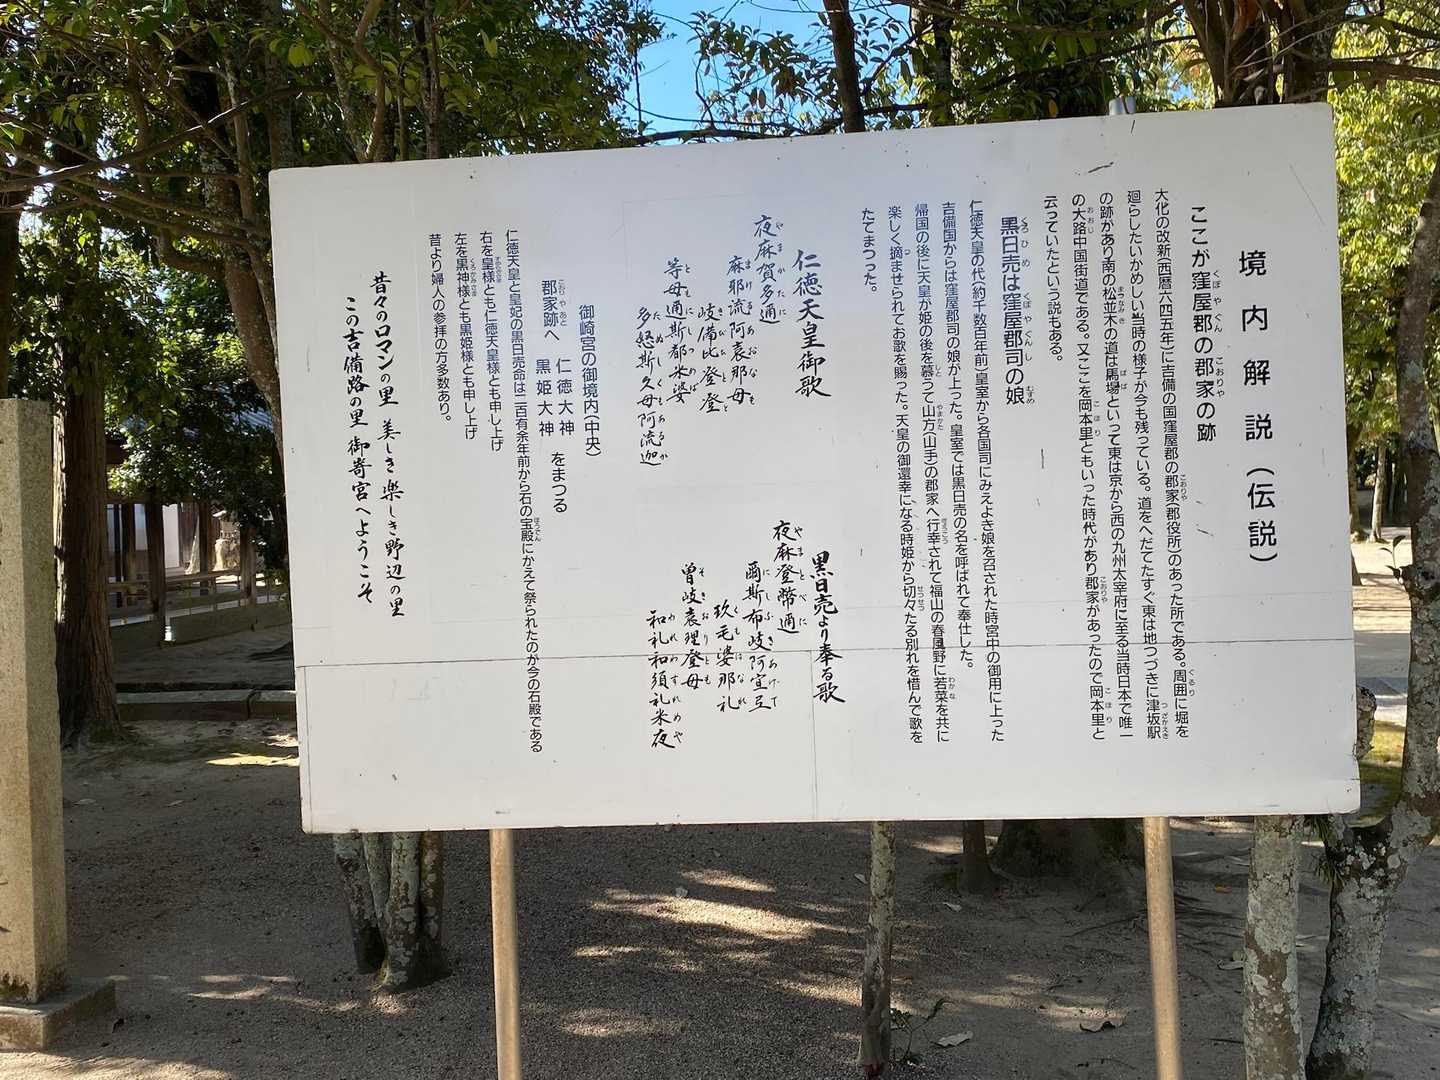 境内解説(伝説)
ここが窪屋郡の郡家の跡
大化の改新(西暦六四五年)に吉備の国窪屋郡の郡家(郡役所)のあった所である。周囲に堀を
廻らしたいかめしい当時の様子が今も残っている。道をへだてたすぐ東は地つづきに津坂駅
の跡があり南の松並木の道は馬場といって東は京から西の九州太宰府に至る当時日本で唯一
の大路中国街道である。又ここを岡本里ともいった時代があり郡家があったので岡本里と
云っていたという説もある。
黒日売は窪屋郡司の娘
仁徳天皇の代(約千数百年前)皇室から各国司にみえよき娘を召された時宮中の御用に上った
吉備国からは窪屋郡司の娘が上った。皇室では黒日売の名を呼ばれて奉仕した。
帰国の後に天皇が姫の後を慕って山方(山手)の郡家へ行幸されて福山の春風野に若菜を共に
楽しく摘ませられてお歌を賜った。天皇の御還幸になる時姫から切々たる別れを惜んで歌を
たてまつった。
仁徳天皇御歌
夜麻賀多邇
麻耶流阿袁那母
岐備比登登
等母邇斯都米婆
多怒斯久母阿流迦
黒日売より奉る歌
夜麻登幣邇
爾斯布岐阿宜弖
玖毛婆那礼
曽岐袁理登母
和礼和須礼米夜
御崎宮の御境内(中央)
郡家跡へ 仁徳大神 黒姫大神 をまつる
仁徳天皇と皇妃の黒日売命は二百有余年前から石の宝殿にかえて祭られたのが今の石殿である
右を皇様とも仁徳天皇様とも申し上げ
左を黒神様とも黒姫様とも申し上げ
昔より婦人の参拝の方多数あり。
昔々のロマンの里 美しき楽しき野辺の里
この吉備路の里 御寄宮へようこそ